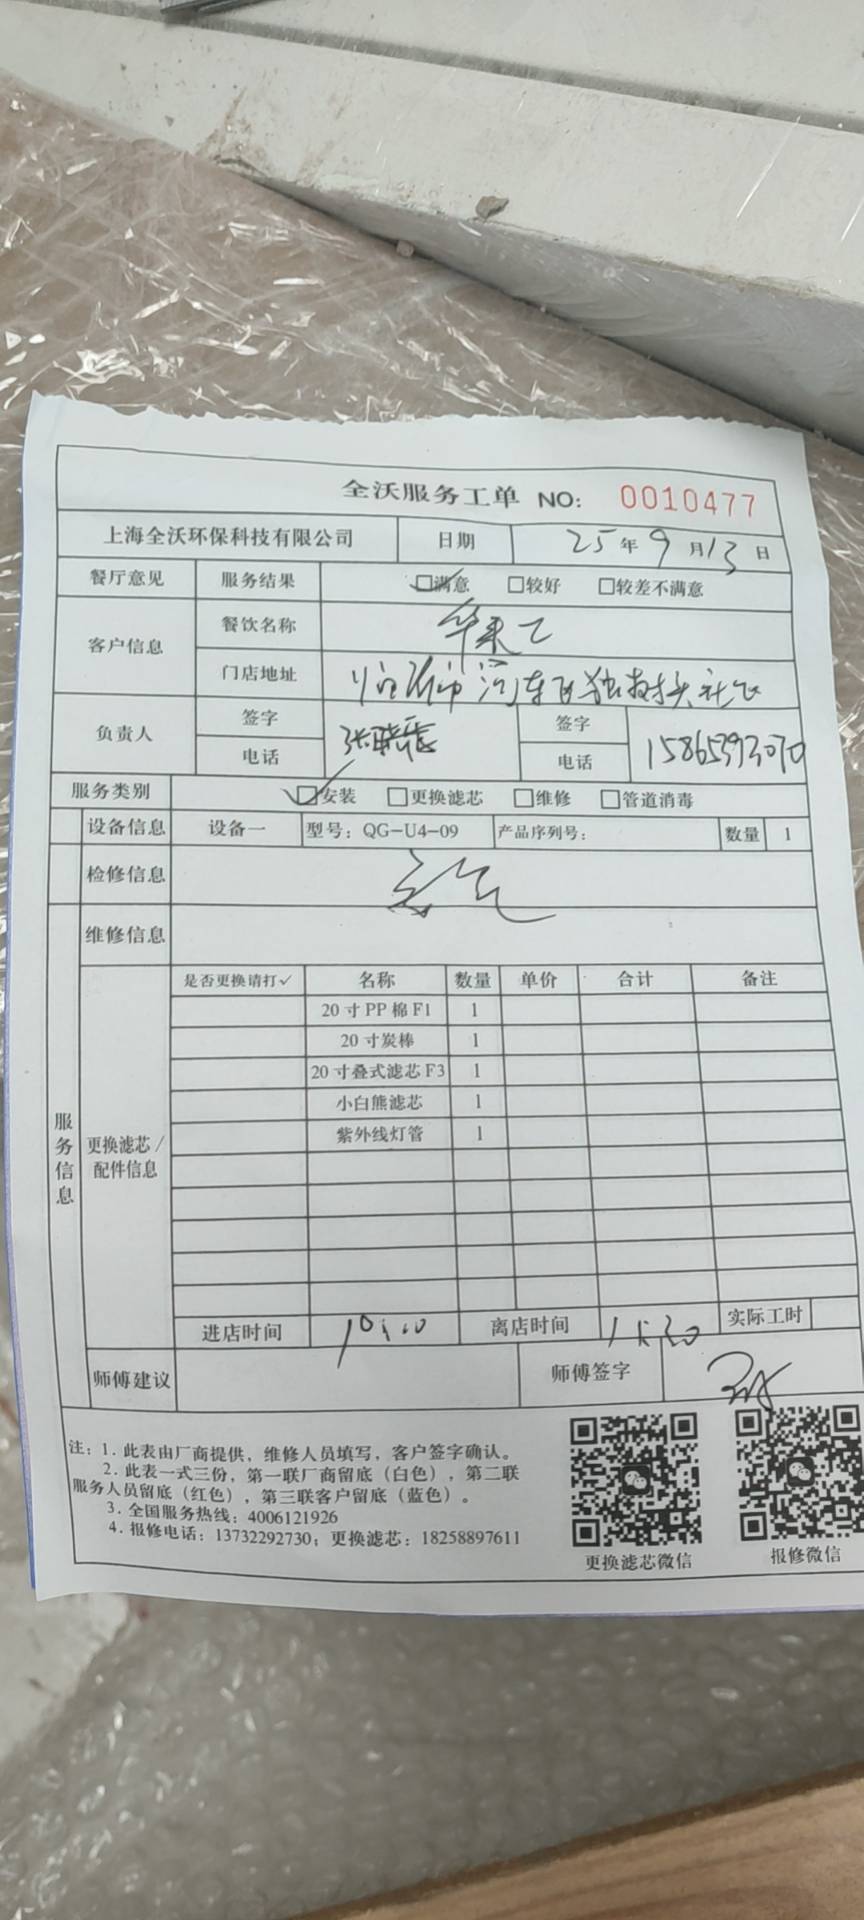 全沃服务工单 NO: 0010477
上海全沃环保科技有限公司 日期 25年9月13日
餐厅意见 服务结果 ☑满意 □较好 □较差不满意
客户信息 餐饮名称 华来乙
门店地址 临沂市河东区独树头社区
负责人 签字 张晓 签字
电话 电话 15865393070
服务类别 ☑安装 □更换滤芯 □维修 □管道消毒
设备信息 设备一 型号：QG-U4-09 产品序列号： 数量 1
检修信息
维修信息
服务信息
更换滤芯/配件信息
是否更换请打✓ 名称 数量 单价 合计 备注
20寸PP棉F1 1
20寸炭棒 1
20寸叠式滤芯F3 1
小白熊滤芯 1
紫外线灯管 1
进店时间 10:00 离店时间 实际工时
师傅建议 师傅签字
注：1．此表由厂商提供，维修人员填写，客户签字确认。
2．此表一式三份，第一联厂商留底（白色），第二联
服务人员留底（红色），第三联客户留底（蓝色）。
3．全国服务热线：4006121926
4．报修电话：13732292730；更换滤芯：18258897611
更换滤芯微信 报修微信